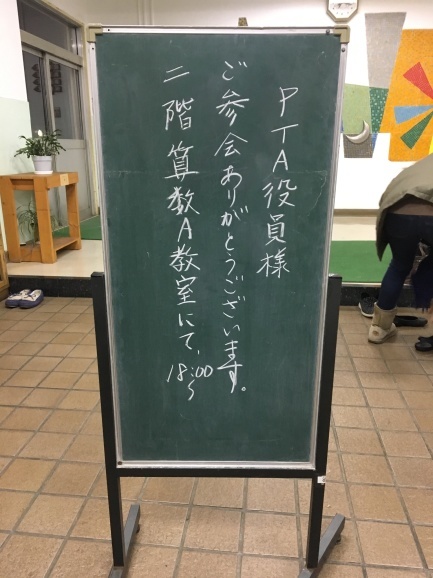 PTA役員様
ご参会ありがとうございます。
二階算数A教室にて、18:00〜